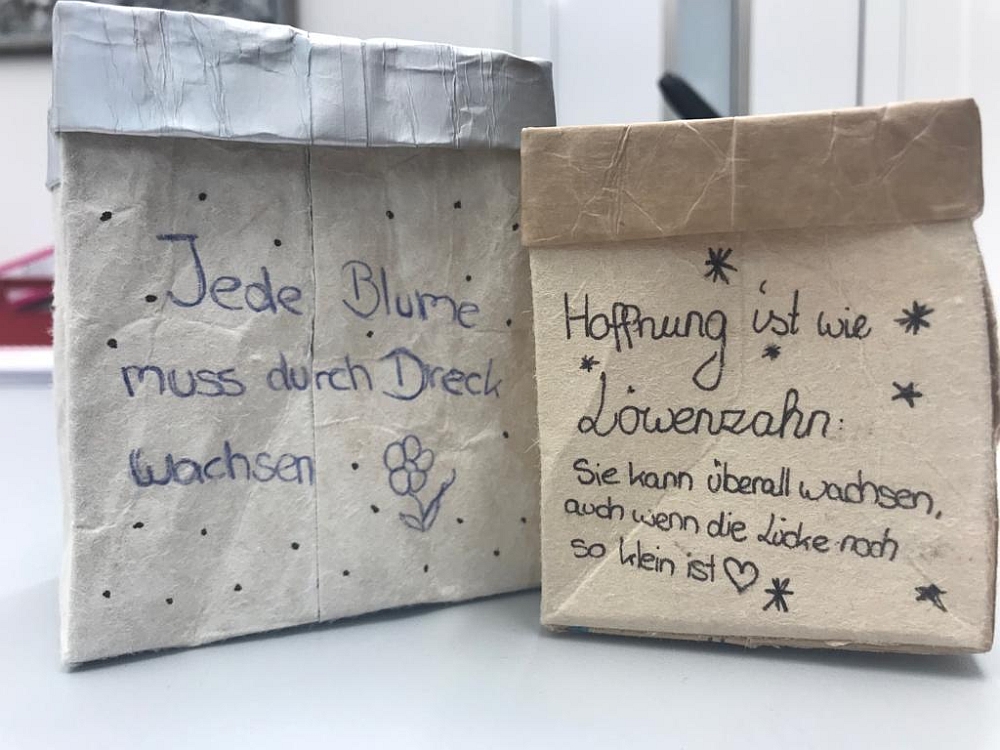 Jede Blume
muss durch Dreck
wachsen
Hoffnung ist wie
Löwenzahn:
Sie kann überall wachsen,
auch wenn die Lücke noch
so klein ist